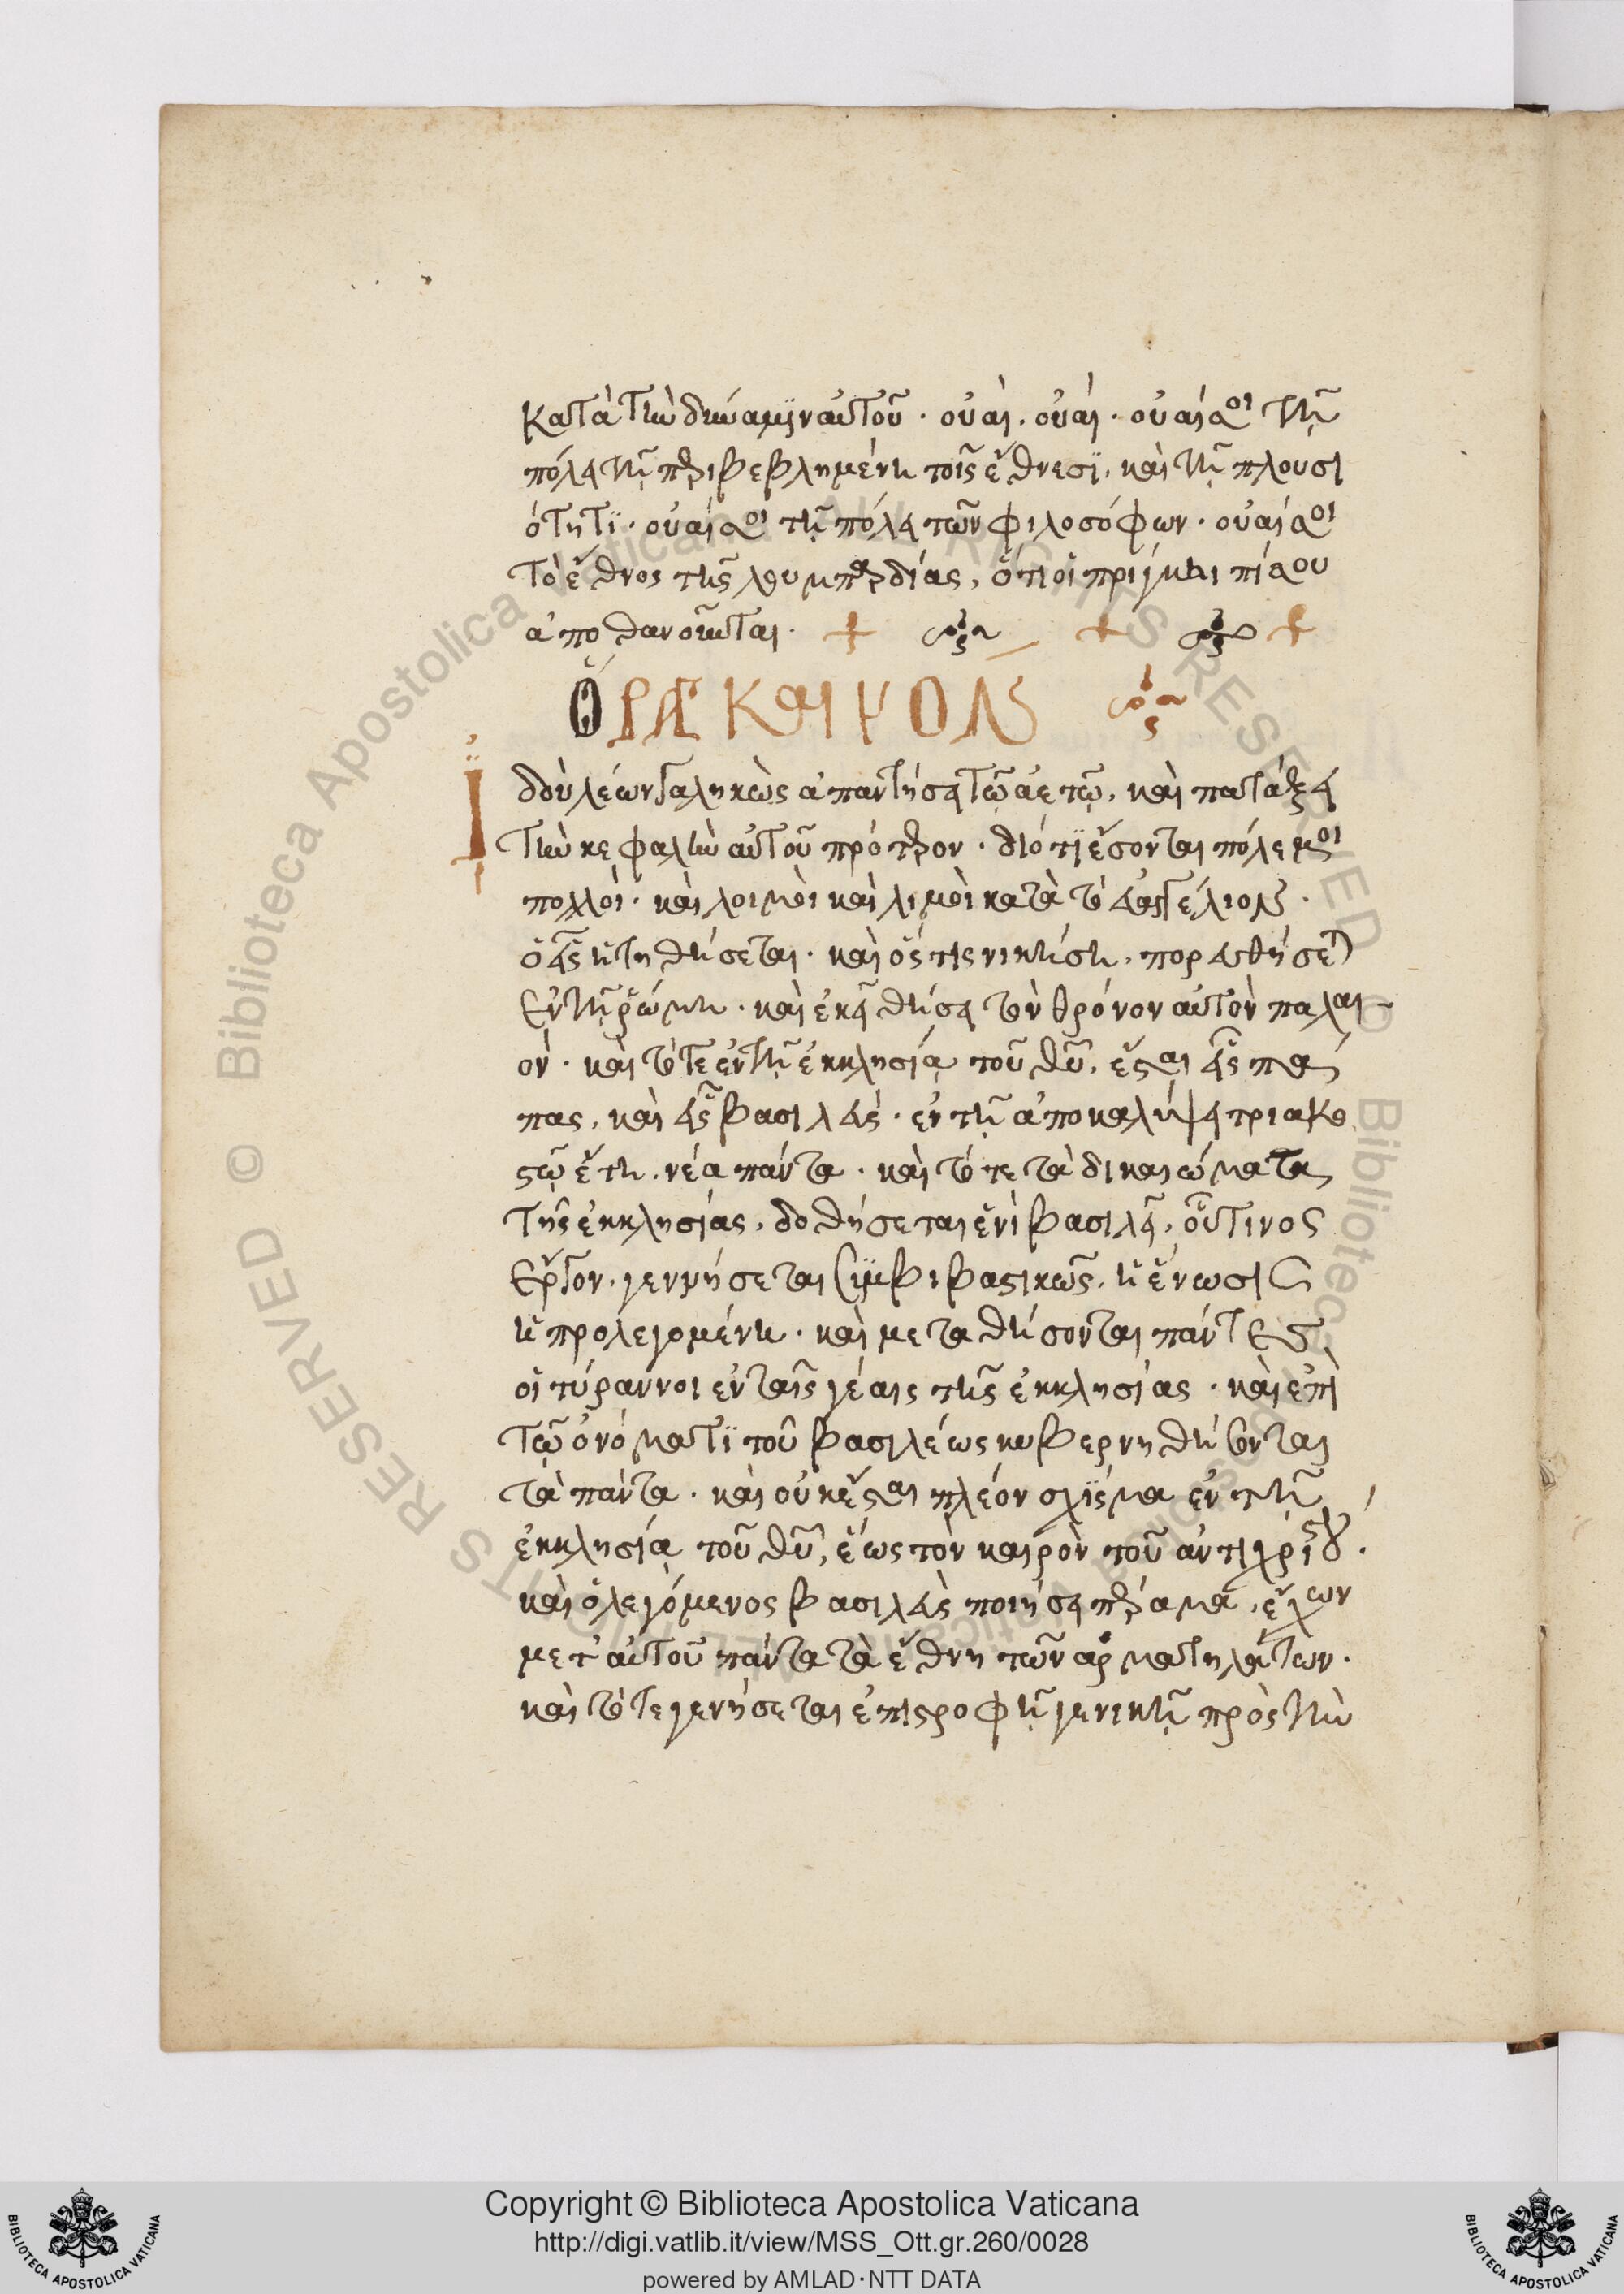 κατὰ τὴν δύναμϊν αὐτοῦ · οὐαὶ · οὐαί · οὐαί σοι τῇ
πόλει τῇ περιβεβλημένη τοῖς ἔθνεσϊ, καὶ τῇ πλουσι
ότητϊ · οὐαί σοι τῇ πόλει τῶν φιλοσόφων · οὐαί σοι
τὸ ἔθνος τῆς λουμπαρδίας, ὅτι οἱ πρίγκιπί σου
ἀποθανοῦνται ·
ὍΡΑ ΚΑΙ ΨΟΛ
Ἰδοὺ λέων γαληκὼς ἀπαντήσει τῷ ἀετῷ, καὶ πατάξει
τὴν κεφαλὴν αὐτοῦ πρότερον · διότϊ ἔσονται πόλεμοι
πολλοί · καὶ λοιμοὶ καὶ λιμοὶ κατὰ τὸ εὐαγγέλιον ·
ὁ εἷς ἡττηθήσεται · καὶ ὅς τις νικήση, πορευθήσεται
ἐν τῇ ῥώμη · καὶ ἐκεῖ θήσει τὸν θρόνον αὐτὸν παλαι
όν · καὶ τότε ἐν τῇ ἐκκλησίᾳ τοῦ θῦ, ἔσται εἷς πά
πας, καὶ εἷς βασιλεύς · ἐν τῇ ἀποκαλύψει τριακο
στῷ ἔτη, νέα πάντα · καὶ τότε τὰ δικαιώματα
τῆς ἐκκλησίας, δοθήσεται ἑνὶ βασιλεῖ, οὗτινος
ἔργον, γεννήσεται συμβιβαστικῶς, ἡ ἕνωσις
ἡ προλεγομένη · καὶ μεταθήσονται πάντες
οἱ τύραννοι ἐν ταῖς γέαις τῆς ἐκκλησίας · καὶ ἐπὶ
τῷ ὀνόματϊ τοῦ βασιλέως κυβερνηθήσονται
τὰ πάντα · καὶ οὐκ ἔσται πλέον σχίσμα ἐν τῇ
ἐκκλησίᾳ τοῦ θῦ, ἕως τὸν καιρὸν τοῦ ἀντιχρίστου ·
καὶ ὁ λεγόμενος βασιλεὺς ποιήσει πέραμα, ἔχων
μετ' αὐτοῦ πάντα τὰ ἔθνη τῶν ἁρματηλάτων ·
καὶ τότε γενήσεται ἐπιστροφῇ γενικῇ πρὸς τὴν
Copyright © Biblioteca Apostolica Vaticana
http://digi.vatlib.it/view/MSS_Ott.gr.260/0028
powered by AMLAD·NTT DATA